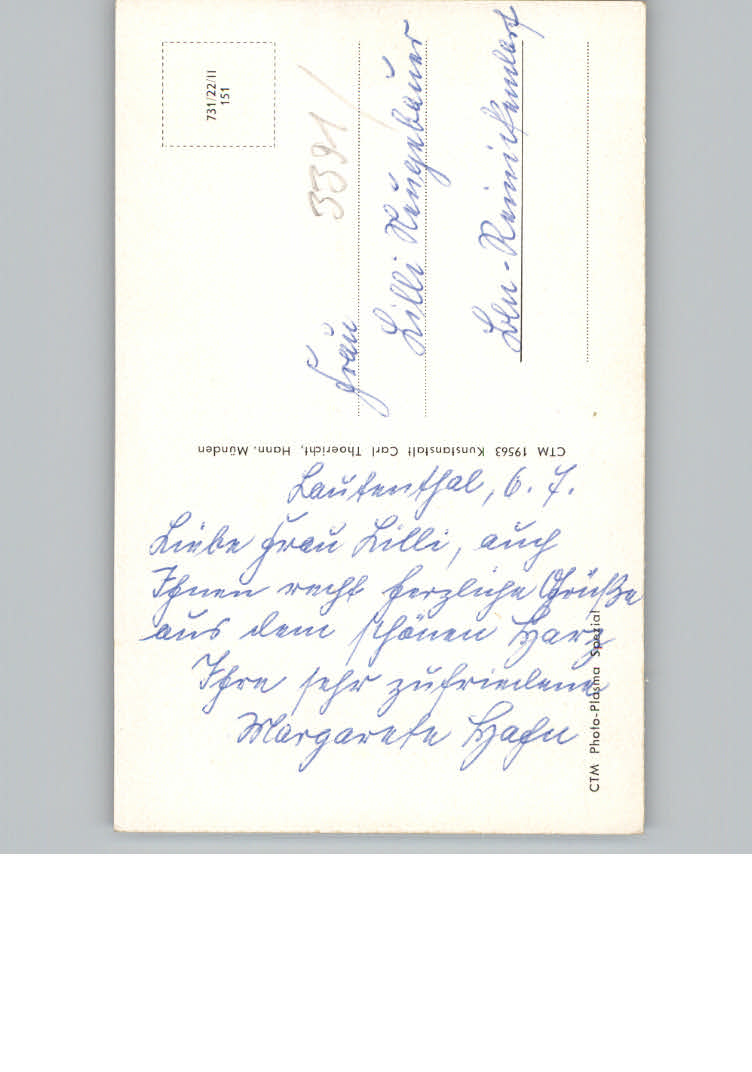 731/22/II
151
3391/
Frau
Lilli Neugebauer
Bln-Reinickendorf
CTM 19563 Kunstanstalt Carl Thoericht, Hann. Münden
Lautenthal, 6. 7.
Liebe Frau Lilli, auch
Ihnen recht herzliche Grüße
aus dem schönen Harz
Ihre sehr zufriedene
Margarete Hahn
CTM Photo-Plasma Spezial